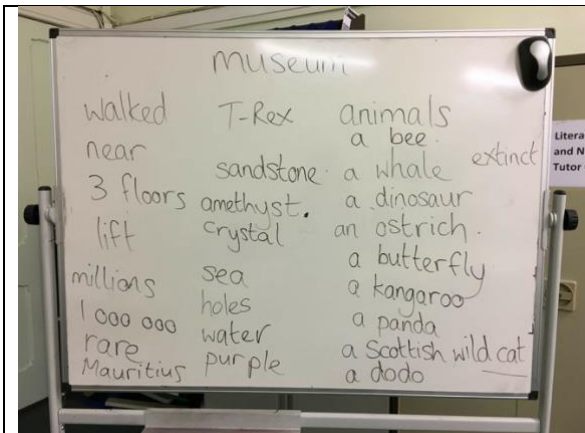 museum
walked
near
3 floors
lift
millions
1 000 000
rare
Mauritius
T-Rex
sandstone.
amethyst.
crystal
sea
holes
water
purple
animals
a bee.
a whale
extinct
a dinosaur
an ostrich.
a butterfly
a kangaroo
a panda
a Scottish wild cat
a dodo
Litera
and N
Tutor